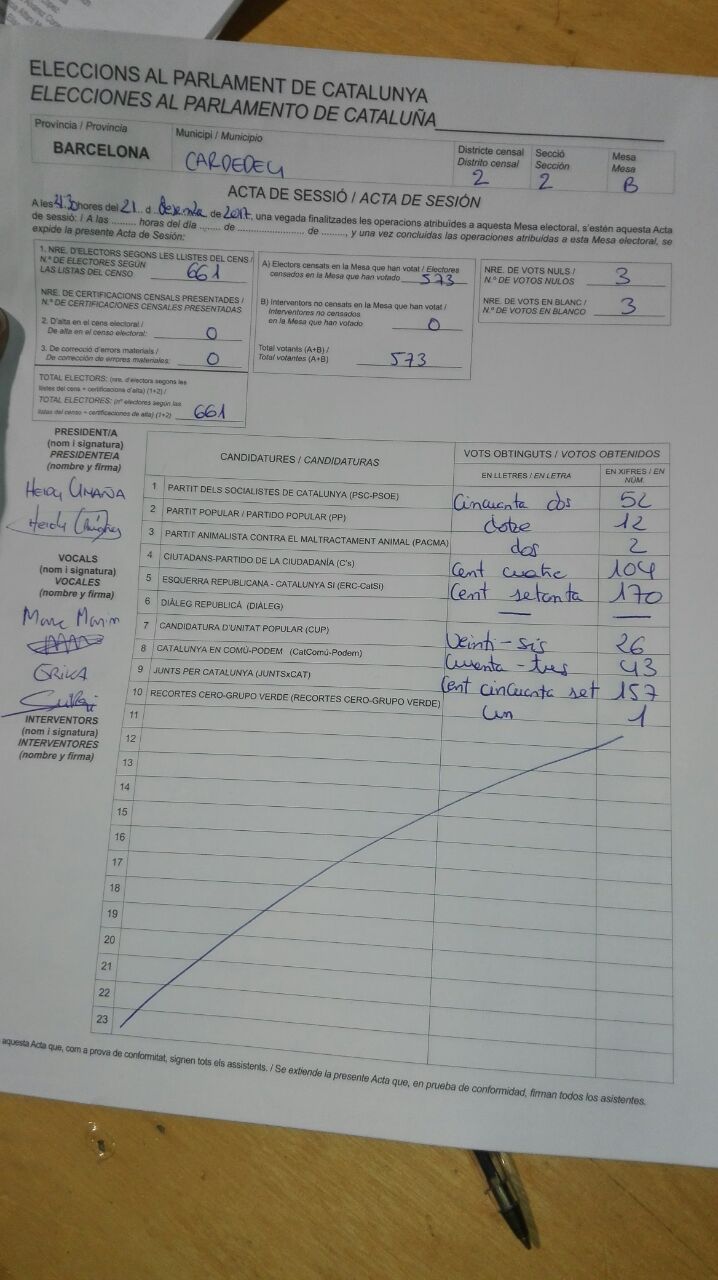 ELECCIONS AL PARLAMENT DE CATALUNYA
ELECCIONES AL PARLAMENTO DE CATALUÑA
Província / Provincia
BARCELONA
Municipi / Municipio
CARDEDEU
Districte censal
Distrito censal
2
Secció
Sección
2
Mesa
Mesa
B
ACTA DE SESSIÓ / ACTA DE SESIÓN
A les hores del 21 d de 2017, una vegada finalitzades les operacions atribuïdes a aquesta Mesa electoral, s'estén aquesta Acta
de sessió: / A las ......... horas del día ....... de ......................... de ........, y una vez concluidas las operaciones atribuidas a esta Mesa electoral, se
expide la presente Acta de Sesión:
1. NRE. D'ELECTORS SEGONS LES LLISTES DEL CENS /
N.º DE ELECTORES SEGÚN
LAS LISTAS DEL CENSO 661
NRE. DE CERTIFICACIONS CENSALS PRESENTADES /
N.º DE CERTIFICACIONES CENSALES PRESENTADAS
2. D'alta en el cens electoral /
De alta en el censo electoral: 0
3. De correcció d'errors materials /
De corrección de errores materiales: 0
TOTAL ELECTORS: (nre. d'electors segons les
llistes del cens + certificacions d'alta) (1+2) /
TOTAL ELECTORES: (nº electores según las
listas del censo + certificaciones de alta) (1+2) 661
A) Electors censats en la Mesa que han votat / Electores
censados en la Mesa que han votado 573
B) Interventors no censats en la Mesa que han votat /
Interventores no censados
en la Mesa que han votado 0
Total votants (A+B) /
Total votantes (A+B) 573
NRE. DE VOTS NULS /
N.º DE VOTOS NULOS 3
NRE. DE VOTS EN BLANC /
N.º DE VOTOS EN BLANCO 3
PRESIDENT/A
(nom i signatura)
PRESIDENTE/A
(nombre y firma)
HEIDY UMAÑA
VOCALS
(nom i signatura)
VOCALES
(nombre y firma)
Marc Marin
ERIKA
INTERVENTORS
(nom i signatura)
INTERVENTORES
(nombre y firma)
CANDIDATURES / CANDIDATURAS
VOTS OBTINGUTS / VOTOS OBTENIDOS
EN LLETRES / EN LETRA
EN XIFRES / EN
NÚM.
1 PARTIT DELS SOCIALISTES DE CATALUNYA (PSC-PSOE) Cincuanta dos 52
2 PARTIT POPULAR / PARTIDO POPULAR (PP) dotze 12
3 PARTIT ANIMALISTA CONTRA EL MALTRACTAMENT ANIMAL (PACMA) dos 2
4 CIUTADANS-PARTIDO DE LA CIUDADANÍA (C's) Cent cuatre 104
5 ESQUERRA REPUBLICANA - CATALUNYA SI (ERC-CatSi) Cent setanta 170
6 DIÀLEG REPUBLICÀ (DIÀLEG) — —
7 CANDIDATURA D'UNITAT POPULAR (CUP) Veinti-sis 26
8 CATALUNYA EN COMÚ-PODEM (CatComú-Podem) 43
9 JUNTS PER CATALUNYA (JUNTSxCAT) Cent cincuanta set 157
10 RECORTES CERO-GRUPO VERDE (RECORTES CERO-GRUPO VERDE) Un 1
11
12
13
14
15
16
17
18
19
20
21
22
23
aquesta Acta que, com a prova de conformitat, signen tots els assistents. / Se extiende la presente Acta que, en prueba de conformidad, firman todos los asistentes.